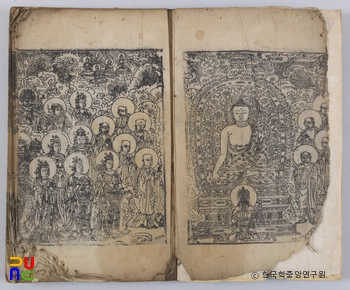 © 한국학중앙연구원